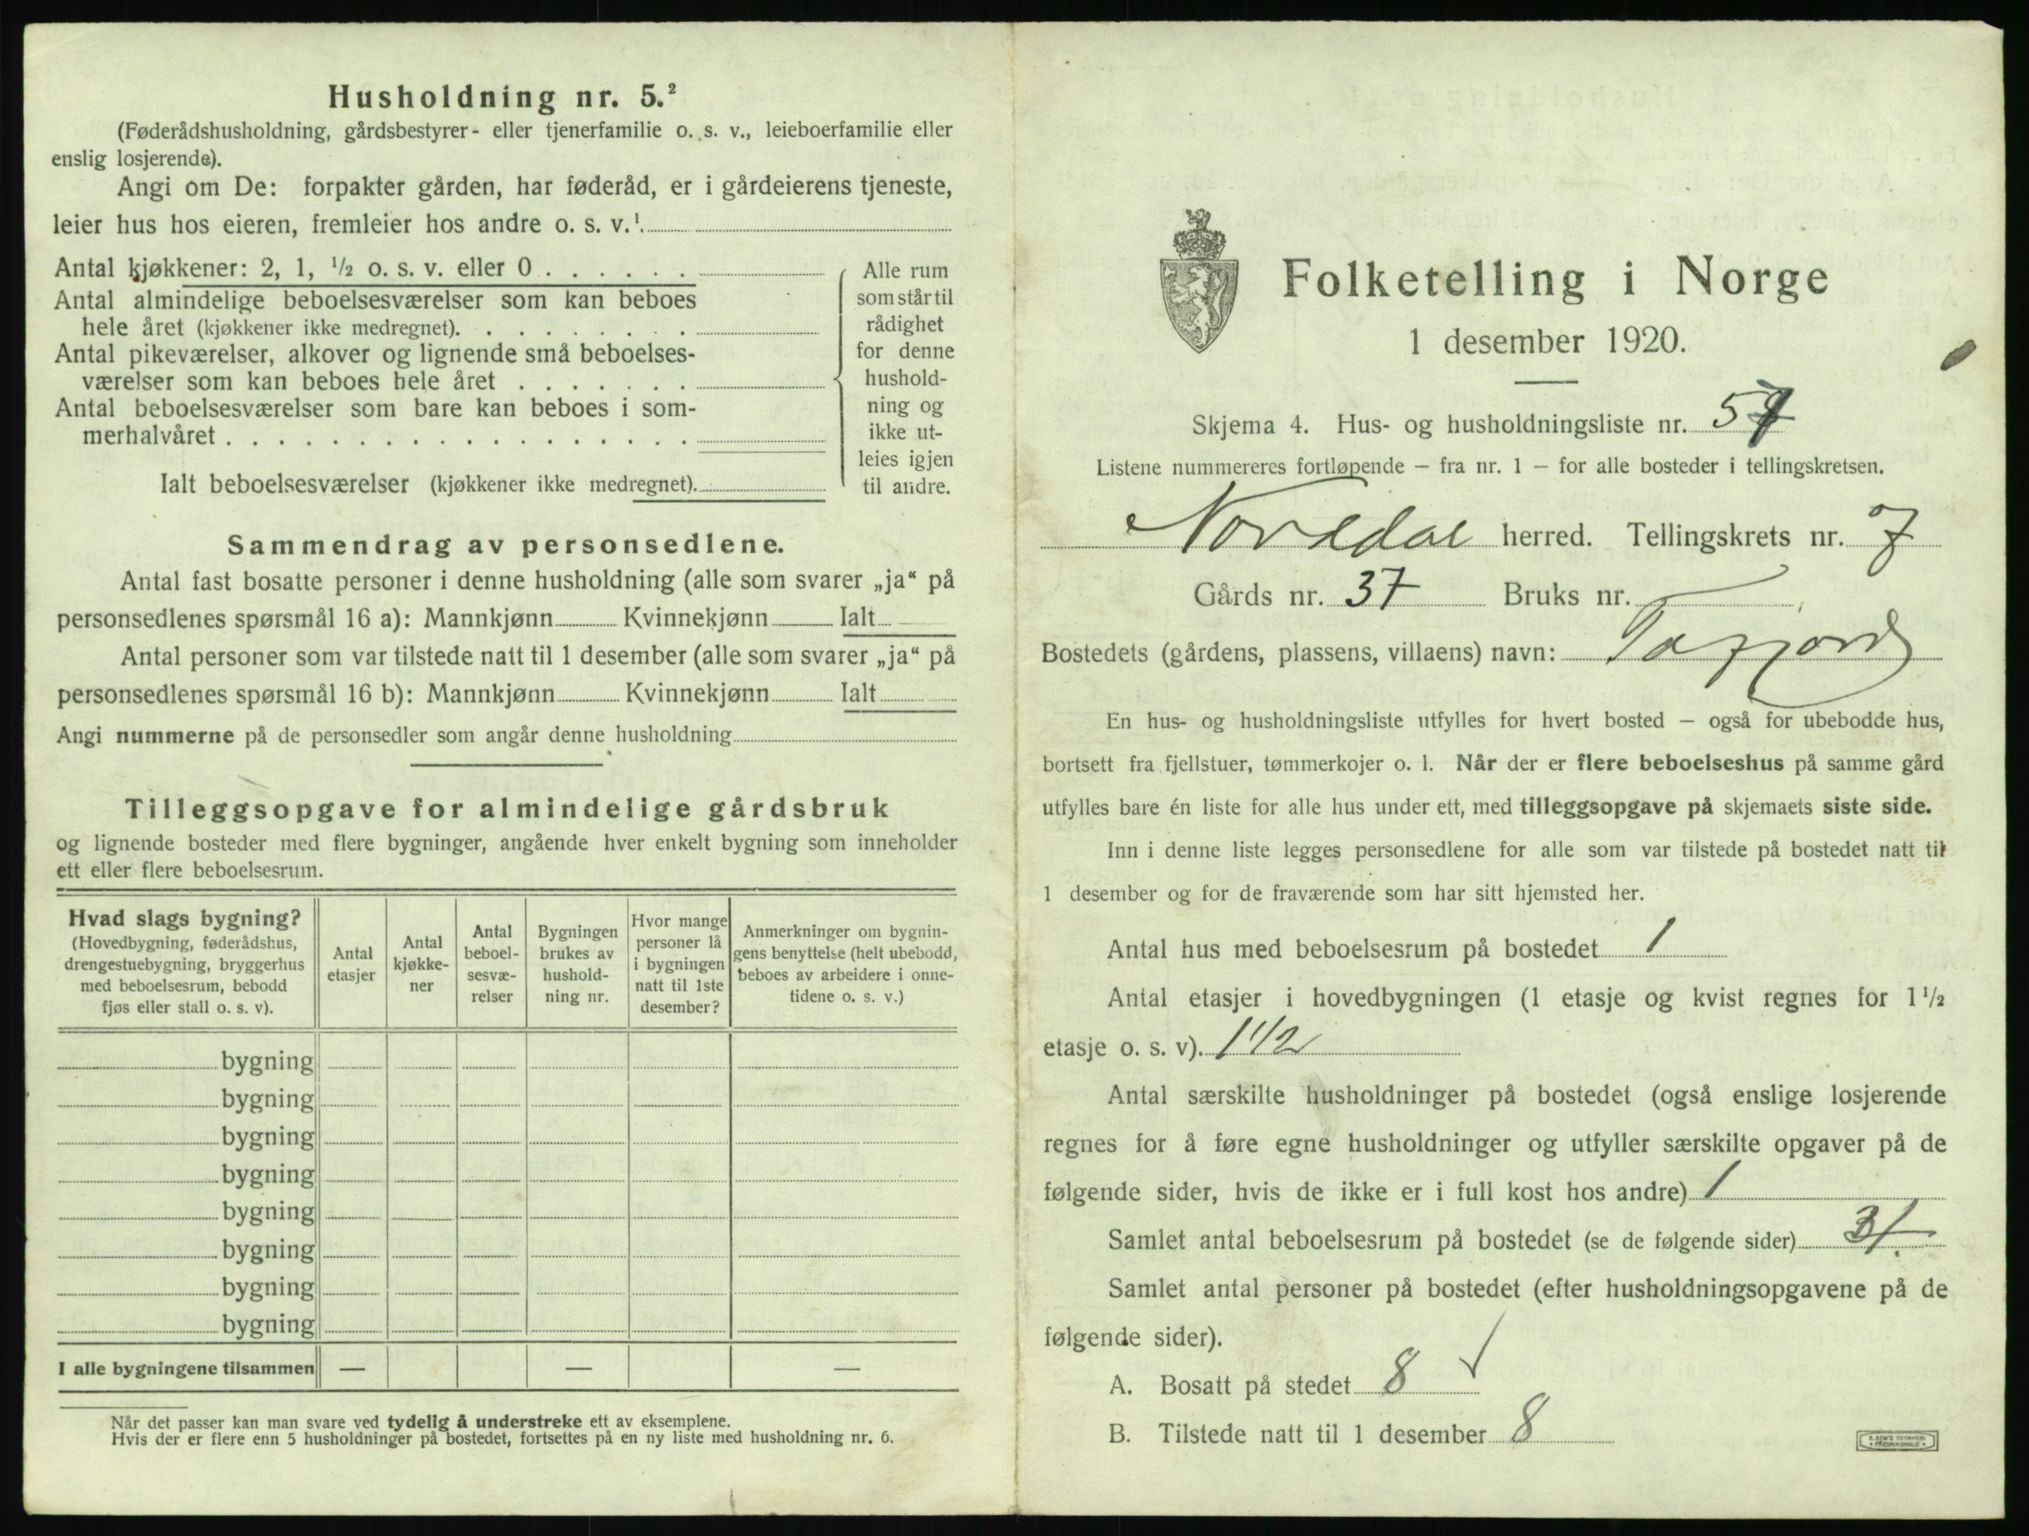 Husholdning nr. 5.²
(Føderådshusholdning, gårdsbestyrer- eller tjenerfamilie o. s. v., leieboerfamilie eller
enslig losjerende).
Angi om De: forpakter gården, har føderåd, er i gårdeierens tjeneste,
leier hus hos eieren, fremleier hos andre o. s. v.¹.
Antal kjøkkener: 2, 1, ½ o. s. v. eller 0 . . . . . .
Antal almindelige beboelsesværelser som kan beboes
hele året (kjøkkener ikke medregnet). . . . . . . . .
Antal pikeværelser, alkover og lignende små beboelses-
værelser som kan beboes hele året . . . . . . .
Antal beboelsesværelser som bare kan beboes i som-
merhalvåret . . . . . . . . . . . . . . . . . .
Ialt beboelsesværelser (kjøkkener ikke medregnet).
Alle rum
som står til
rådighet
for denne
hushold-
ning og
ikke ut-
leies igjen
til andre.
Sammendrag av personsedlene.
Antal fast bosatte personer i denne husholdning (alle som svarer „ja“ på
personsedlenes spørsmål 16 a): Mannkjønn Kvinnekjønn Ialt
Antal personer som var tilstede natt til 1 desember (alle som svarer „ja“ på
personsedlenes spørsmål 16 b): Mannkjønn Kvinnekjønn Ialt
Angi nummerne på de personsedler som angår denne husholdning
Tilleggsopgave for almindelige gårdsbruk
og lignende bosteder med flere bygninger, angående hver enkelt bygning som inneholder
ett eller flere beboelsesrum.
Hvad slags bygning?
(Hovedbygning, føderådshus,
drengestuebygning, bryggerhus
med beboelsesrum, bebodd
fjøs eller stall o. s. v).
Antal
etasjer
Antal
kjøkke-
ner
Antal
beboel-
sesvæ-
relser
Bygningen
brukes av
hushold-
ning nr.
Hvor mange
personer lå
i bygningen
natt til 1ste
desember?
Anmerkninger om bygnin-
gens benyttelse (helt ubebodd,
beboes av arbeidere i onne-
tidene o. s. v.)
bygning
bygning
bygning
bygning
bygning
bygning
bygning
bygning
I alle bygningene tilsammen — — —
Når det passer kan man svare ved tydelig å understreke ett av eksemplene.
Hvis der er flere enn 5 husholdninger på bostedet, fortsettes på en ny liste med husholdning nr. 6.
Folketelling i Norge
1 desember 1920.
Skjema 4. Hus- og husholdningsliste nr.
Listene nummereres fortløpende – fra nr. 1 – for alle bosteder i tellingskretsen.
Norddal herred. Tellingskrets nr. 7
Gårds nr. 37 Bruks nr.
Bostedets (gårdens, plassens, villaens) navn: Tafjord
En hus- og husholdningsliste utfylles for hvert bosted – også for ubebodde hus,
bortsett fra fjellstuer, tømmerkojer o. l. Når der er flere beboelseshus på samme gård
utfylles bare én liste for alle hus under ett, med tilleggsopgave på skjemaets siste side.
Inn i denne liste legges personsedlene for alle som var tilstede på bostedet natt til
1 desember og for de fraværende som har sitt hjemsted her.
Antal hus med beboelsesrum på bostedet 1
Antal etasjer i hovedbygningen (1 etasje og kvist regnes for 1½
etasje o. s. v). 1 1/2
Antal særskilte husholdninger på bostedet (også enslige losjerende
regnes for å føre egne husholdninger og utfyller særskilte opgaver på de
følgende sider, hvis de ikke er i full kost hos andre) 1
Samlet antal beboelsesrum på bostedet (se de følgende sider)
Samlet antal personer på bostedet (efter husholdningsopgavene på de
følgende sider).
A. Bosatt på stedet 8 ✓
B. Tilstede natt til 1 desember 8